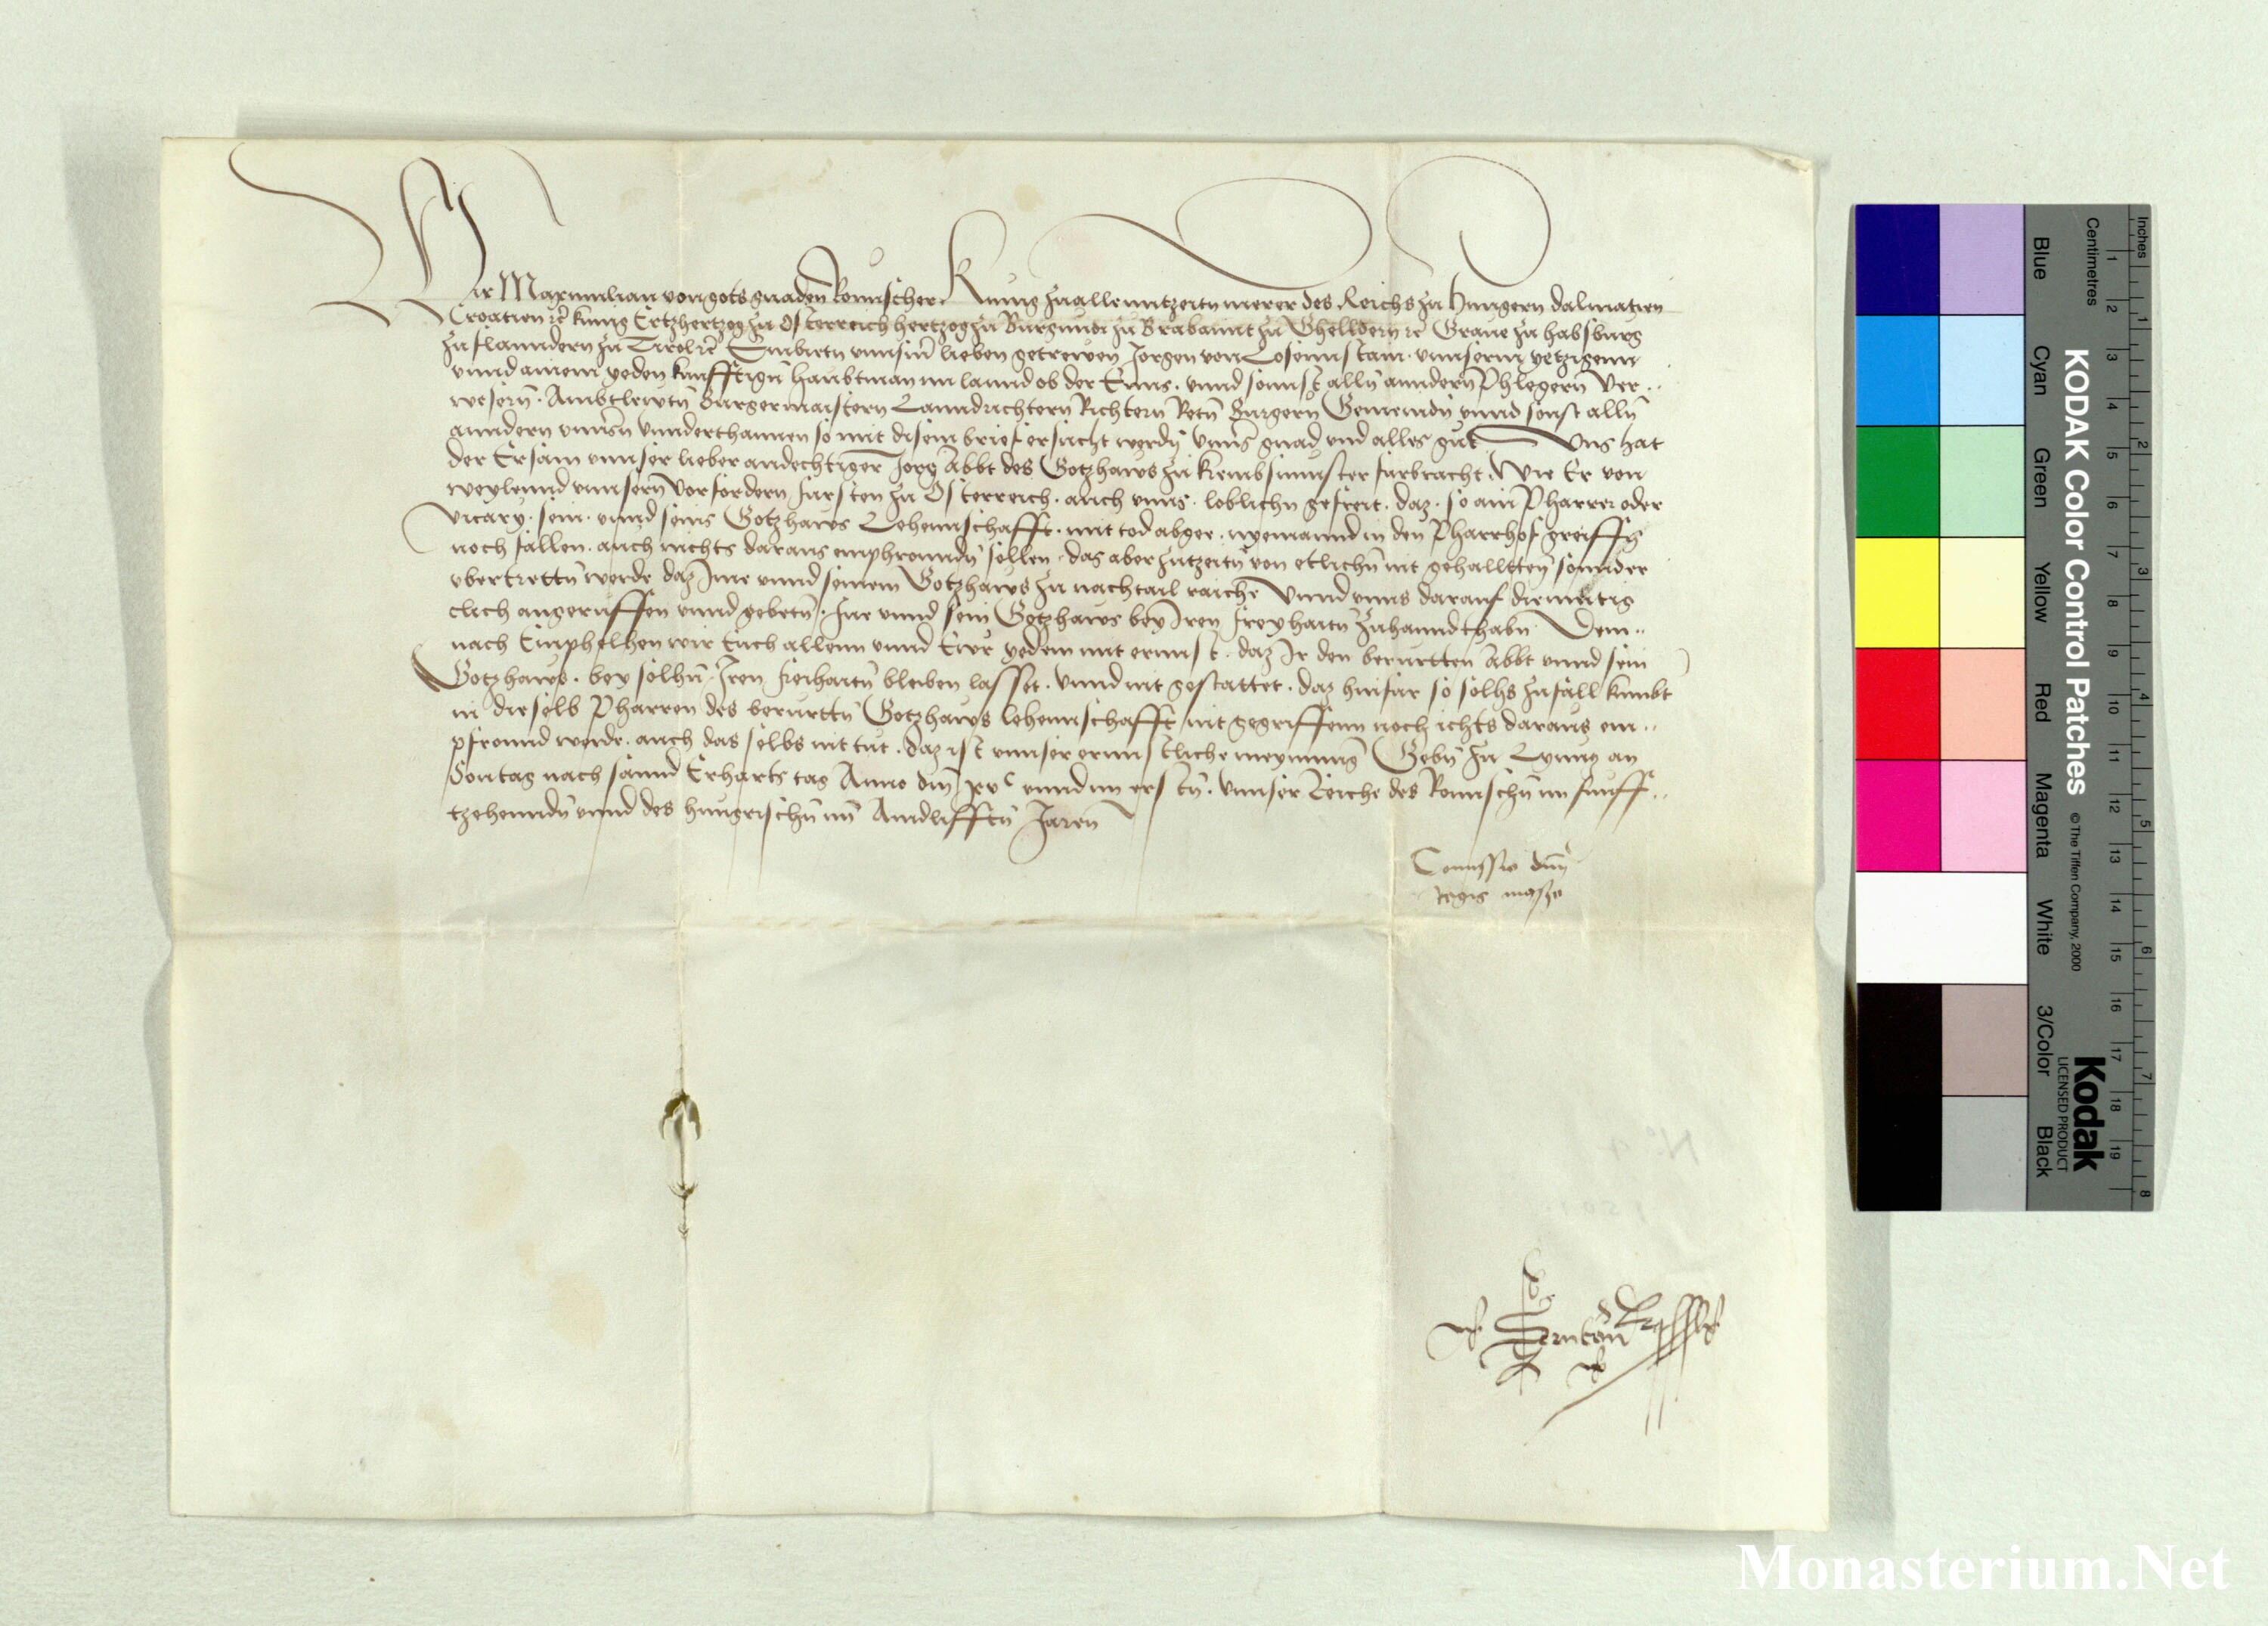 Wir Maximilian von gots gnaden Romischer Kunig zu allenntzeitn merer des Reichs zu Hungern Dalmatien
Croatien ꝛc̄ kunig Ertzhertzog zu Österreich Hertzog zu Burgundi zu Brabannt zu Ghelldern ꝛc̄ Graue zu Habsburg
zu Flanndern zu Tirol ꝛc̄ Embietn vnnsern̄ lieben getrewen Jorgen von Losennstain. vnnserm yetzigenn
vnnd ainem yeden kunfftign̄ haubtman im lannd ob der Enns. vnnd sonnst alln̄ anndern̄ Phlegern̄ Ver..
wesern̄. Ambtlewtn̄ Burgermaistern Lanndrichtern Richtern Retn̄ Burgern̄ Gemeindn̄ vnnd sonst alln̄
anndern vnnsn̄ vnnderthannen so mit disem brief ersucht werdn̄ vnns̄ gnad vnd alles gut Vns hat
der Ersam vnnser lieber andechtiger Jorg Abbt des Gotzhaws zu Krembsmunster furbracht. Wie Er von
weylennd vnnsern̄ Vorfordern fursten zu Österreich. auch vnns. loblichn gefreit. daz. so ain Pharrer oder
Vicary. sein. vnnd seins Gotzhaws Lehennschafft. mit tod abgee. nyemannd in den Pharrhof greiffn̄
noch fallen. auch nichts daraus emphrömdn̄ sollen. das aber zutzeitn̄ von etlichn̄ nit gehalltten̄ sonnder
vbertrettn̄ werde daz Ime vnnd seinem Gotzhaws zu nachtail raiche Vnnd vnns darauf diemutig
clich angeruffen vnnd gebetn̄. Ine vnnd sein Gotzhaws bey Iren freyhaitn̄ zuhanndthabn̄ Dem..
nach Emphelhen wir Euch allenn vnnd Ewr yedem mit ernnst. daz Ir den berurtten Abbt vnnd sein
Gotzhaws. bey solhn̄. Iren freihaitn̄ bleiben lasset. Vnnd nit gestattet. daz hinfur so solhs zufall kumbt
in dieselb Pharren des berurttn̄ Gotzhaws lehennschafft nit gegriffenn noch ichts daraus em..
pfrömd werde. auch das selbs nit tut. daz ist vnnser ernnstliche meynung Gebn̄ zu Lynntz an
Sontag nach sannd Erharts tag Anno dm̄ xvᶜ vnnd im erstn̄. Vnnser Reiche des Romischn̄ im funff..
tzehenndn̄ vnnd des hungrischn̄ im̄ Aindlifftn̄ Jaren
Comissio dm̄
Regis
Monasterium.Net
KODAK Color Control Patches
© The Tiffen Company, 2000
Kodak
LICENSED PRODUCT
Inches
1 2 3 4 5 6 7 8
Centimetres
1 2 3 4 5 6 7 8 9 10 11 12 13 14 15 16 17 18 19
Blue
Cyan
Green
Yellow
Red
Magenta
White
3/Color
Black